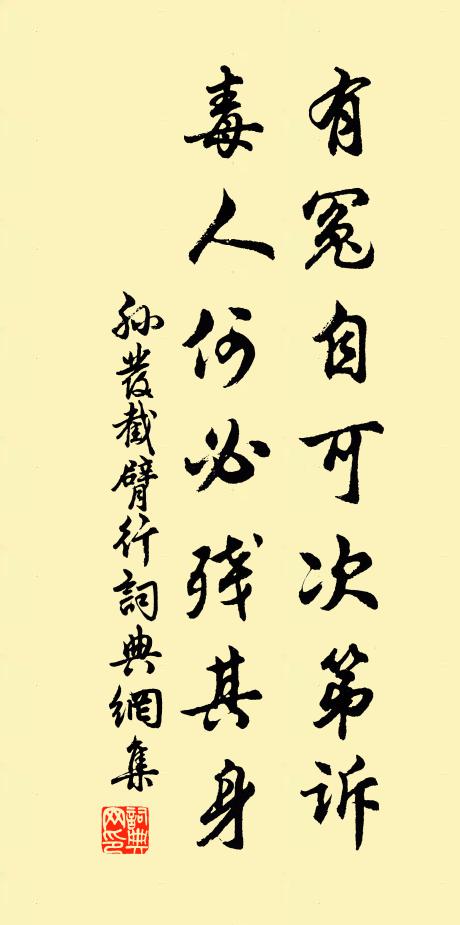 有冤自可次第诉
毒人何必残其身
孙發截臂行詞典網集
詞典网印